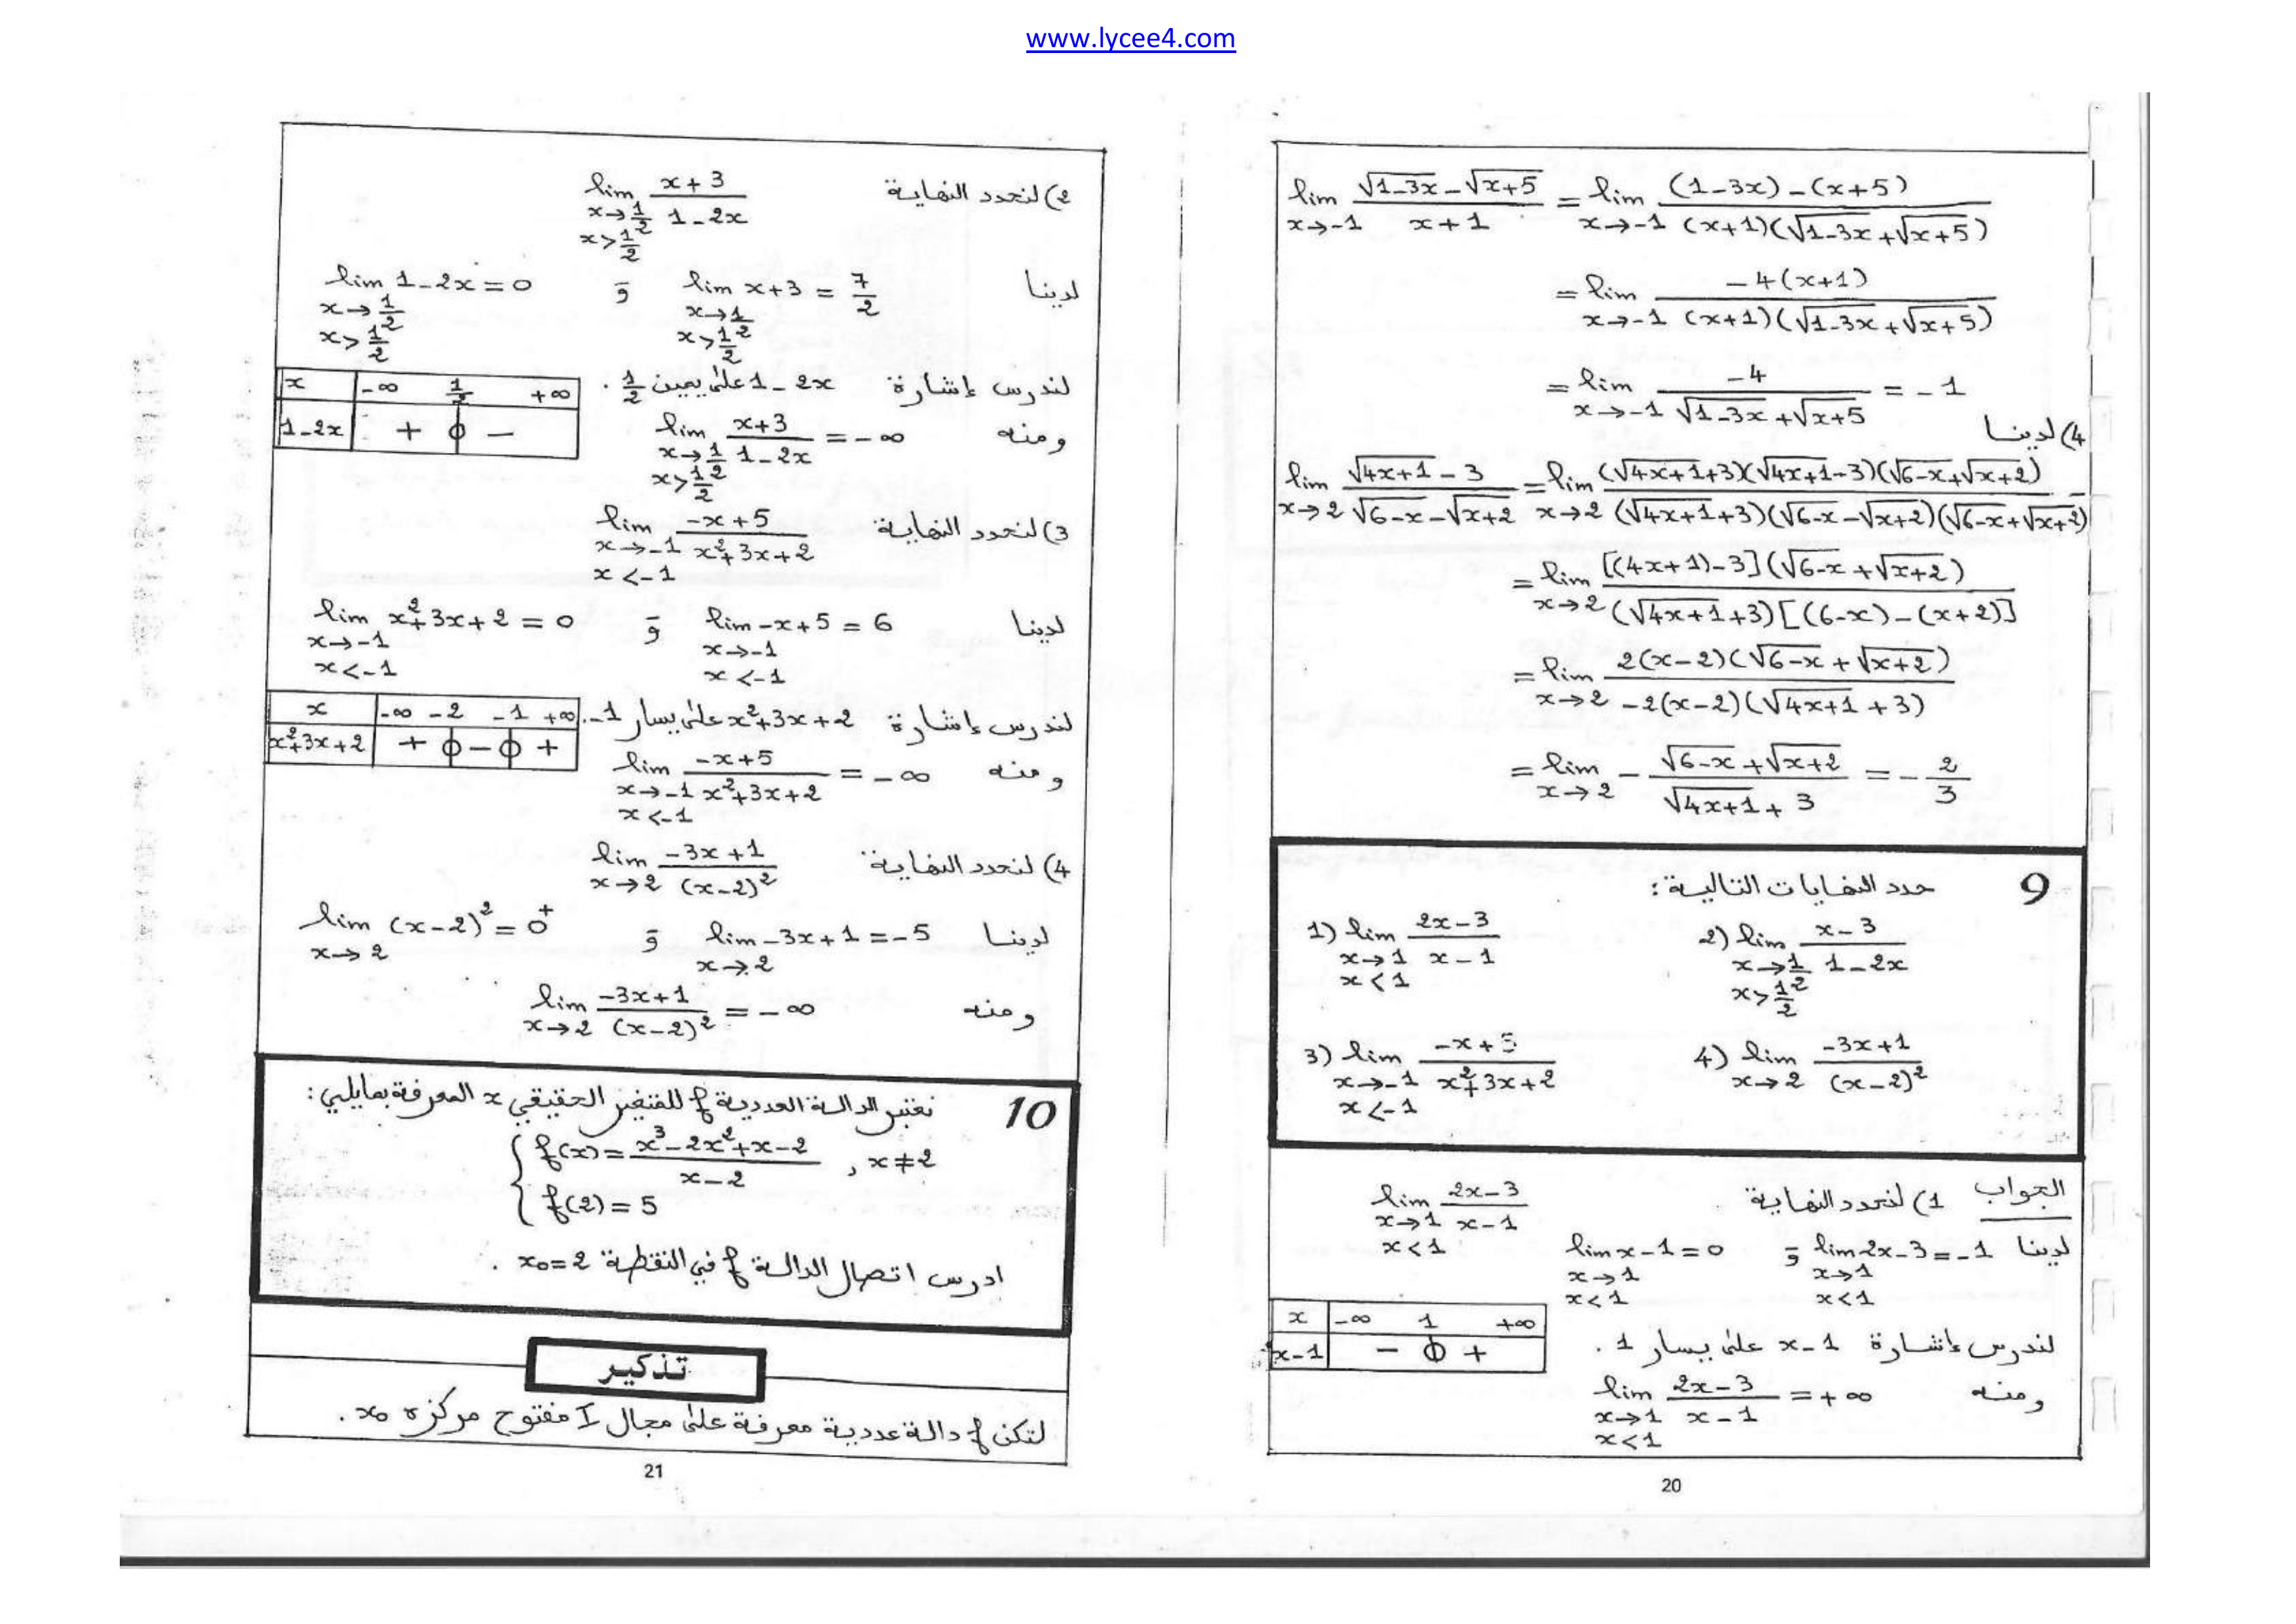 www.lycee4.com
lim_{x→-1} (√(1-3x) - √(x+5))/(x+1) = lim_{x→-1} ((1-3x)-(x+5))/((x+1)(√(1-3x)+√(x+5)))
= lim_{x→-1} (-4(x+1))/((x+1)(√(1-3x)+√(x+5)))
= lim_{x→-1} (-4)/(√(1-3x)+√(x+5)) = -1
4) لدينا
lim_{x→2} (√(4x+1) - 3)/(√(6-x) - √(x+2)) = lim_{x→2} ((√(4x+1)+3)(√(4x+1)-3)(√(6-x)+√(x+2)))/((√(4x+1)+3)(√(6-x)-√(x+2))(√(6-x)+√(x+2)))
= lim_{x→2} ([(4x+1)-3](√(6-x)+√(x+2)))/((√(4x+1)+3)[(6-x)-(x+2)])
= lim_{x→2} (2(x-2)(√(6-x)+√(x+2)))/(-2(x-2)(√(4x+1)+3))
= lim_{x→2} - (√(6-x)+√(x+2))/(√(4x+1)+3) = - 2/3
9 حدد النهايات التالية:
1) lim_{x→1, x<1} (2x-3)/(x-1) 2) lim_{x→1/2, x>1/2} (x-3)/(1-2x)
3) lim_{x→-1, x<-1} (-x+5)/(x²+3x+2) 4) lim_{x→2} (-3x+1)/(x-2)²
الجواب 1) لنحدد النهاية lim_{x→1, x<1} (2x-3)/(x-1)
لدينا lim_{x→1, x<1} 2x-3 = -1 و lim_{x→1, x<1} x-1 = 0
لندرس إشارة x-1 على يسار 1 .
x -∞ 1 +∞
x-1 - 0 +
ومنه lim_{x→1, x<1} (2x-3)/(x-1) = +∞
20
2) لنحدد النهاية lim_{x→1/2, x>1/2} (x+3)/(1-2x)
لدينا lim_{x→1/2, x>1/2} x+3 = 7/2 و lim_{x→1/2, x>1/2} 1-2x = 0
لندرس إشارة 1-2x على يمين 1/2 .
x -∞ 1/2 +∞
1-2x + 0 -
ومنه lim_{x→1/2, x>1/2} (x+3)/(1-2x) = -∞
3) لنحدد النهاية lim_{x→-1, x<-1} (-x+5)/(x²+3x+2)
لدينا lim_{x→-1, x<-1} -x+5 = 6 و lim_{x→-1, x<-1} x²+3x+2 = 0
لندرس إشارة x²+3x+2 على يسار -1 .
x -∞ -2 -1 +∞
x²+3x+2 + 0 - 0 +
ومنه lim_{x→-1, x<-1} (-x+5)/(x²+3x+2) = -∞
4) لنحدد النهاية lim_{x→2} (-3x+1)/(x-2)²
لدينا lim_{x→2} -3x+1 = -5 و lim_{x→2} (x-2)² = 0⁺
ومنه lim_{x→2} (-3x+1)/(x-2)² = -∞
10 نعتبر الدالة العددية f للمتغير الحقيقي x المعرفة بمايلي:
{ f(x) = (x³-2x²+x-2)/(x-2) , x≠2
f(2) = 5
ادرس اتصال الدالة f في النقطة x₀=2 .
تذكير
لتكن f دالة عددية معرفة على مجال I مفتوح مركزه x₀ .
21